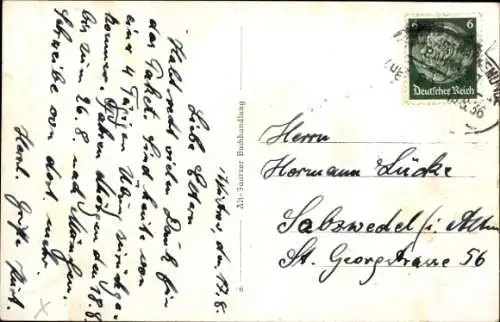 Wustrow, den 17.8.
Liebe Eltern
Habt recht vielen Dank für
das Paket. Sind heute von
einer 4 Tägigen Übung zurückge-
kommen. Fahren morgen den 18.8.
bis zum 26.8. nach
Schreibe von dort mehr
Herzl. Grüße Kurt.
Alt-Gaarzer Buchhandlung
6
Deutscher Reich
36
Herrn
Hermann Lücke
Salzwedel i. Altm
St. Georgstrasse 56